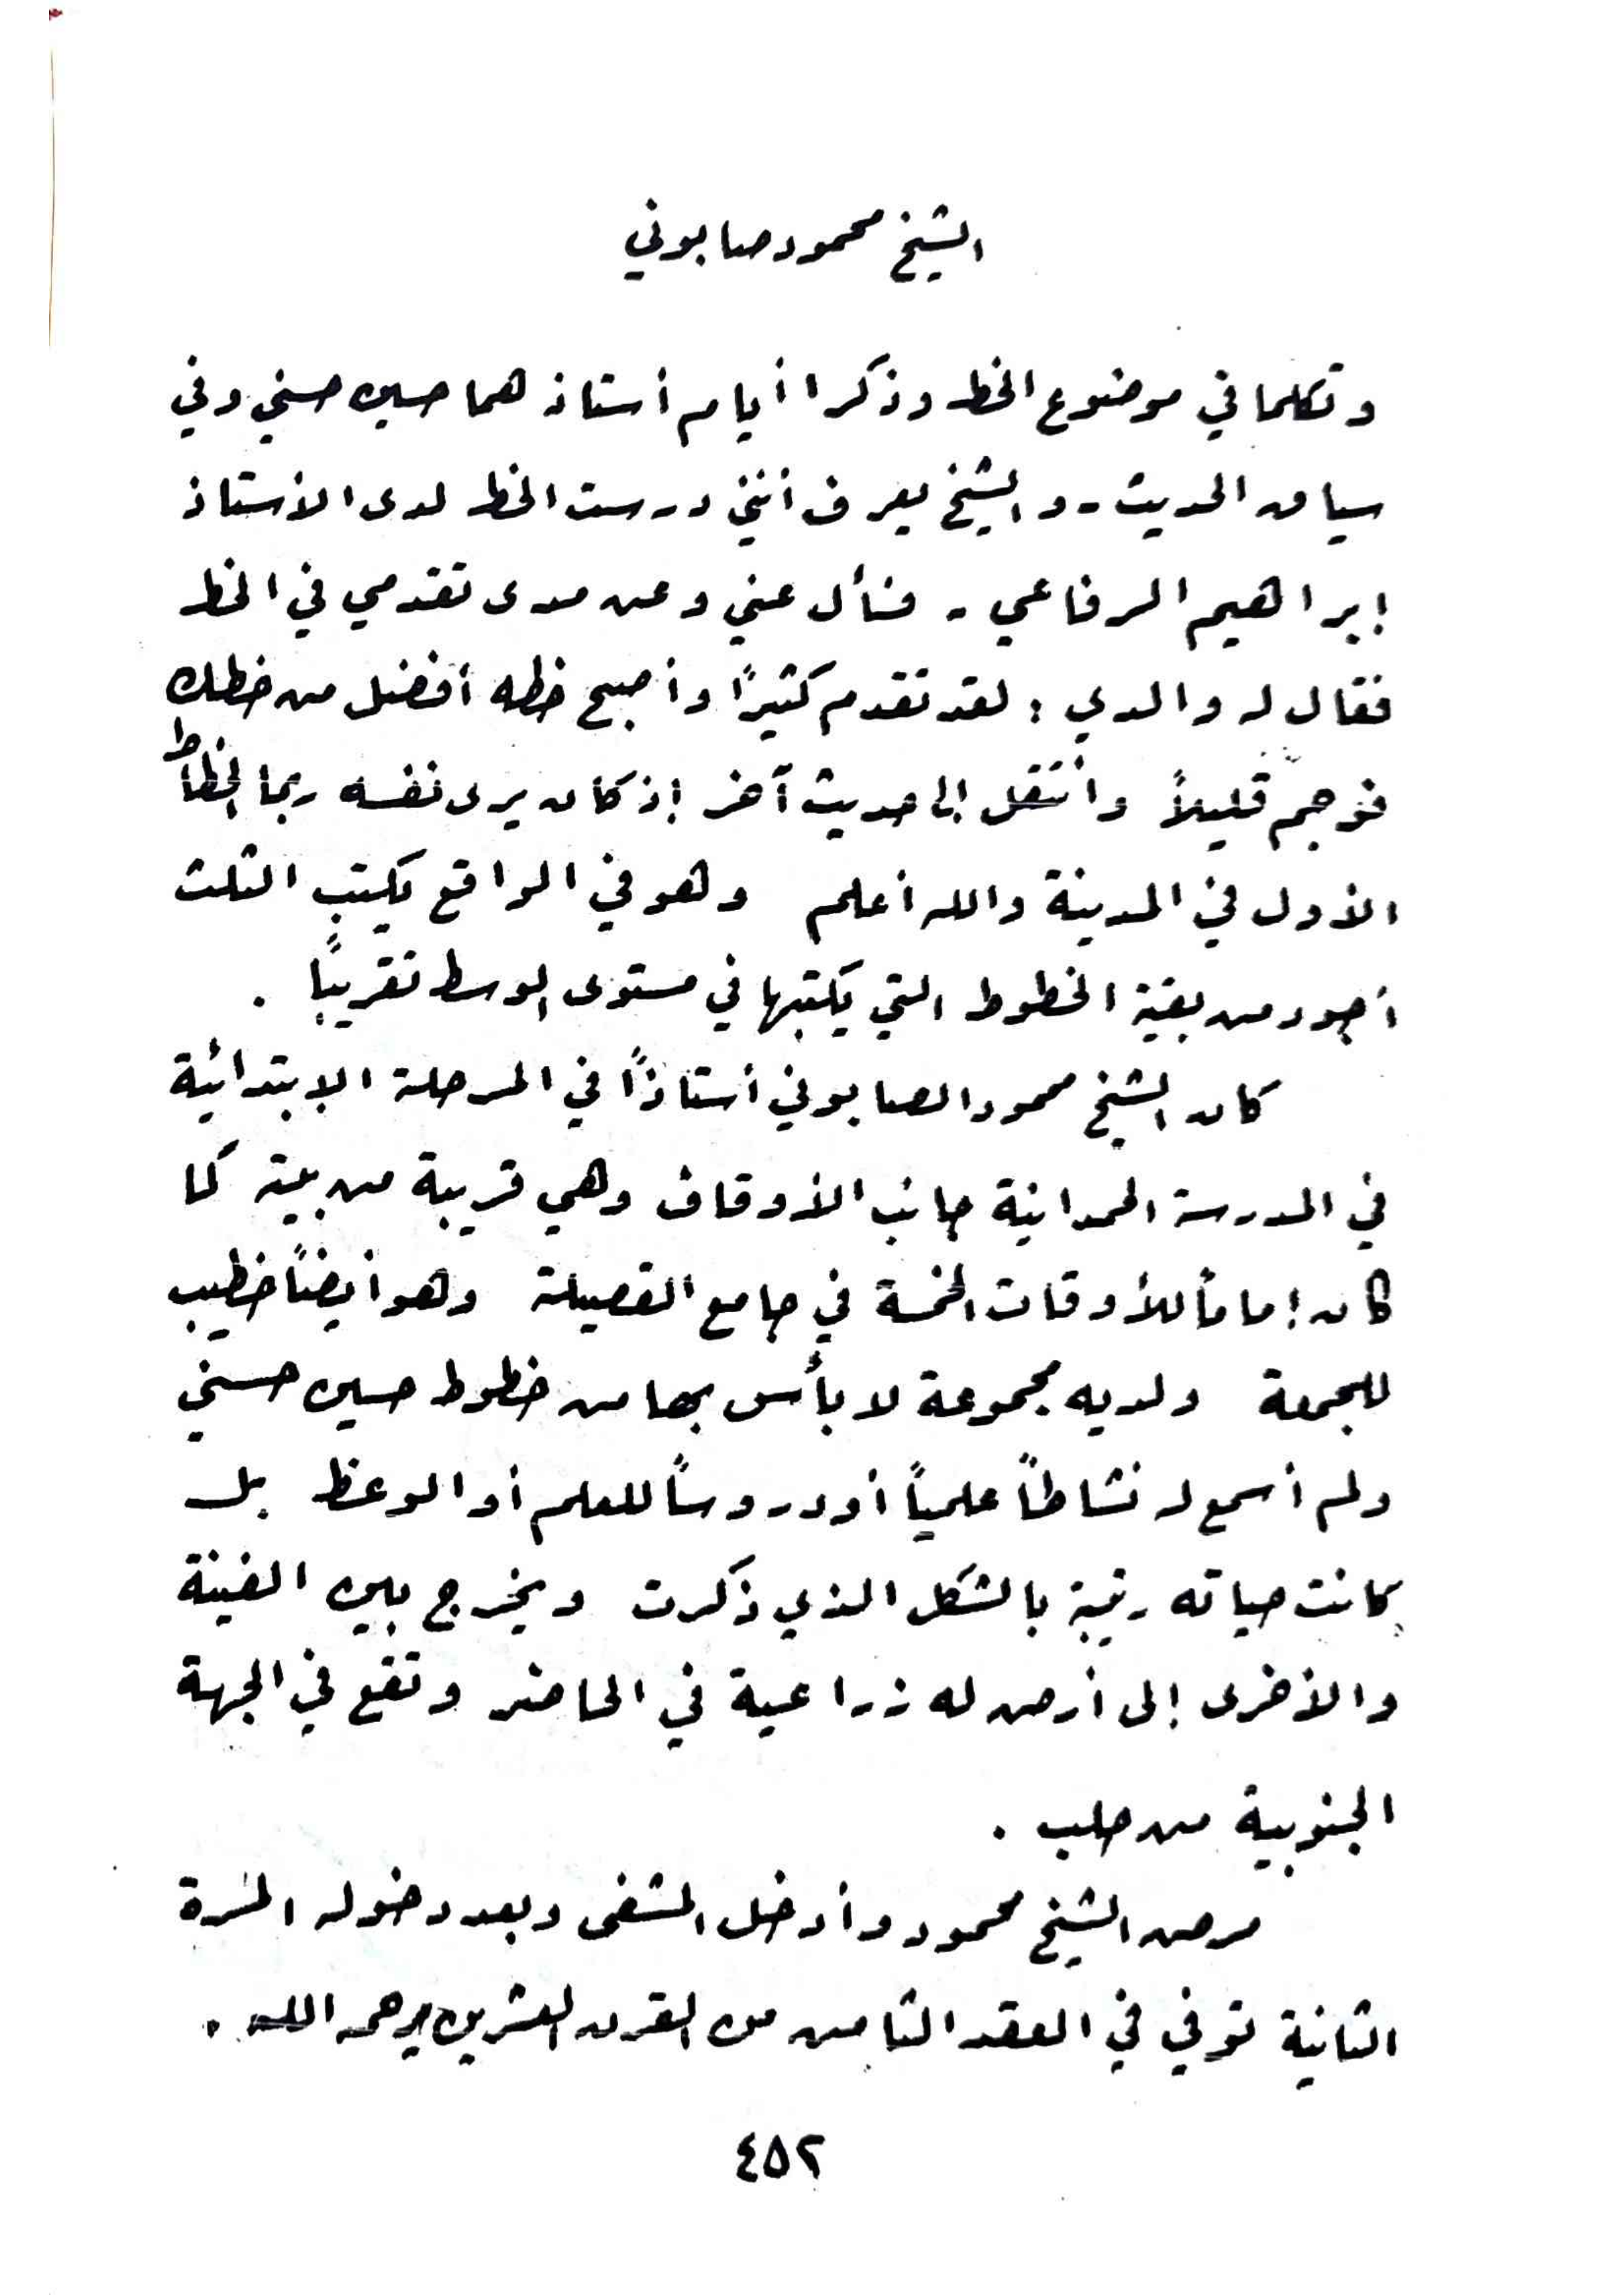 الشيخ محمود صابوني
وتكلما في موضوع الخط وذكرا أيام أستاذهما حسين حسني وفي
سياق الحديث - والشيخ يعرف أنني درست الخط لدى الأستاذ
إبراهيم الرفاعي - فسأل عني وعن مدى تقدمي في الخط
فقال له والدي : لقد تقدم كثيرًا وأصبح خطه أفضل من خطك
فوجم قليلاً وانتقل إلى حديث آخر إذ كان يرى نفسه ربما الخطاط
الأول في المدينة والله أعلم وهو في الواقع يكتب الثلث
أجود من بقية الخطوط التي يكتبها في مستوى الوسط تقريبًا .
كان الشيخ محمود الصابوني أستاذاً في المرحلة الابتدائية
في المدرسة الحمدانية جانب الأوقاف وهي قريبة من بيته كما
كان إماماً للأوقات الخمسة في جامع القصيلة وهو أيضاً خطيب
للجمعة ولديه مجموعة لا بأس بها من خطوط حسين حسني
ولم أسمع له نشاطاً علمياً أو دروساً للعلم أو الوعظ بل
كانت حياته رتيبة بالشكل الذي ذكرت ويخرج بين الفينة
والأخرى إلى أرض له زراعية في الحاضر وتقع في الجهة
الجنوبية من حلب .
مرض الشيخ محمود وأدخل المشفى وبعد دخوله المرة
الثانية توفي في العقد الثامن من القرن العشرين يرحمه الله .
٤٥٢